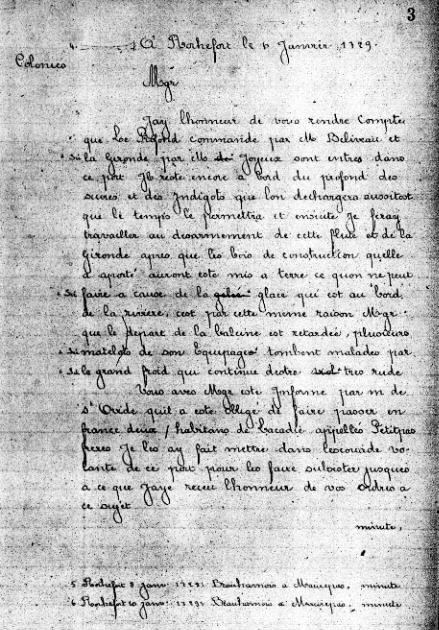 3
4. A Rochefort le 6 Janvrie 1729.
Colonies
Mgr
Jay lhonneur de vous rendre Compte
que Le Profond commande par M Beliveau et
la Gironde par M de Joyeux sont entres dans
ce port Il reste encore a bord du profond des
sucres et des Indigots que lon dechargera aussitost
que le temps le permettra et ensuite je feray
travailler au desarmement de cette flute et de la
Gironde apres que les bois de construction quelle
a aporté auront este mis a terre ce quon ne peut
faire a cause de la glace qui est au bord
de la riviere, cest par cette mesme raison Mgr
que le depart de la baleine est retardée, plusieurs
matelots de son Equipage tombent malades par
le grand froid qui continue destre tres rude
Vous aves Mgr este Informe par m de
St Ovide quil a este oblige de faire passer en
france deux habitans de Lacadie appelles Petitpas
freres Je les ay fait mettre dans lescouade vo-
lante de ce port pour les faire subsister jusques
a ce que Jaye receu lhonneur de vos ordres a
ce sujet
minute,
5 Rochefort 8 janv. 1729. Beauharnois a Maurepas, minute
6 Rochefort 20 janv. 1729. Beauharnois a Maurepas, minute